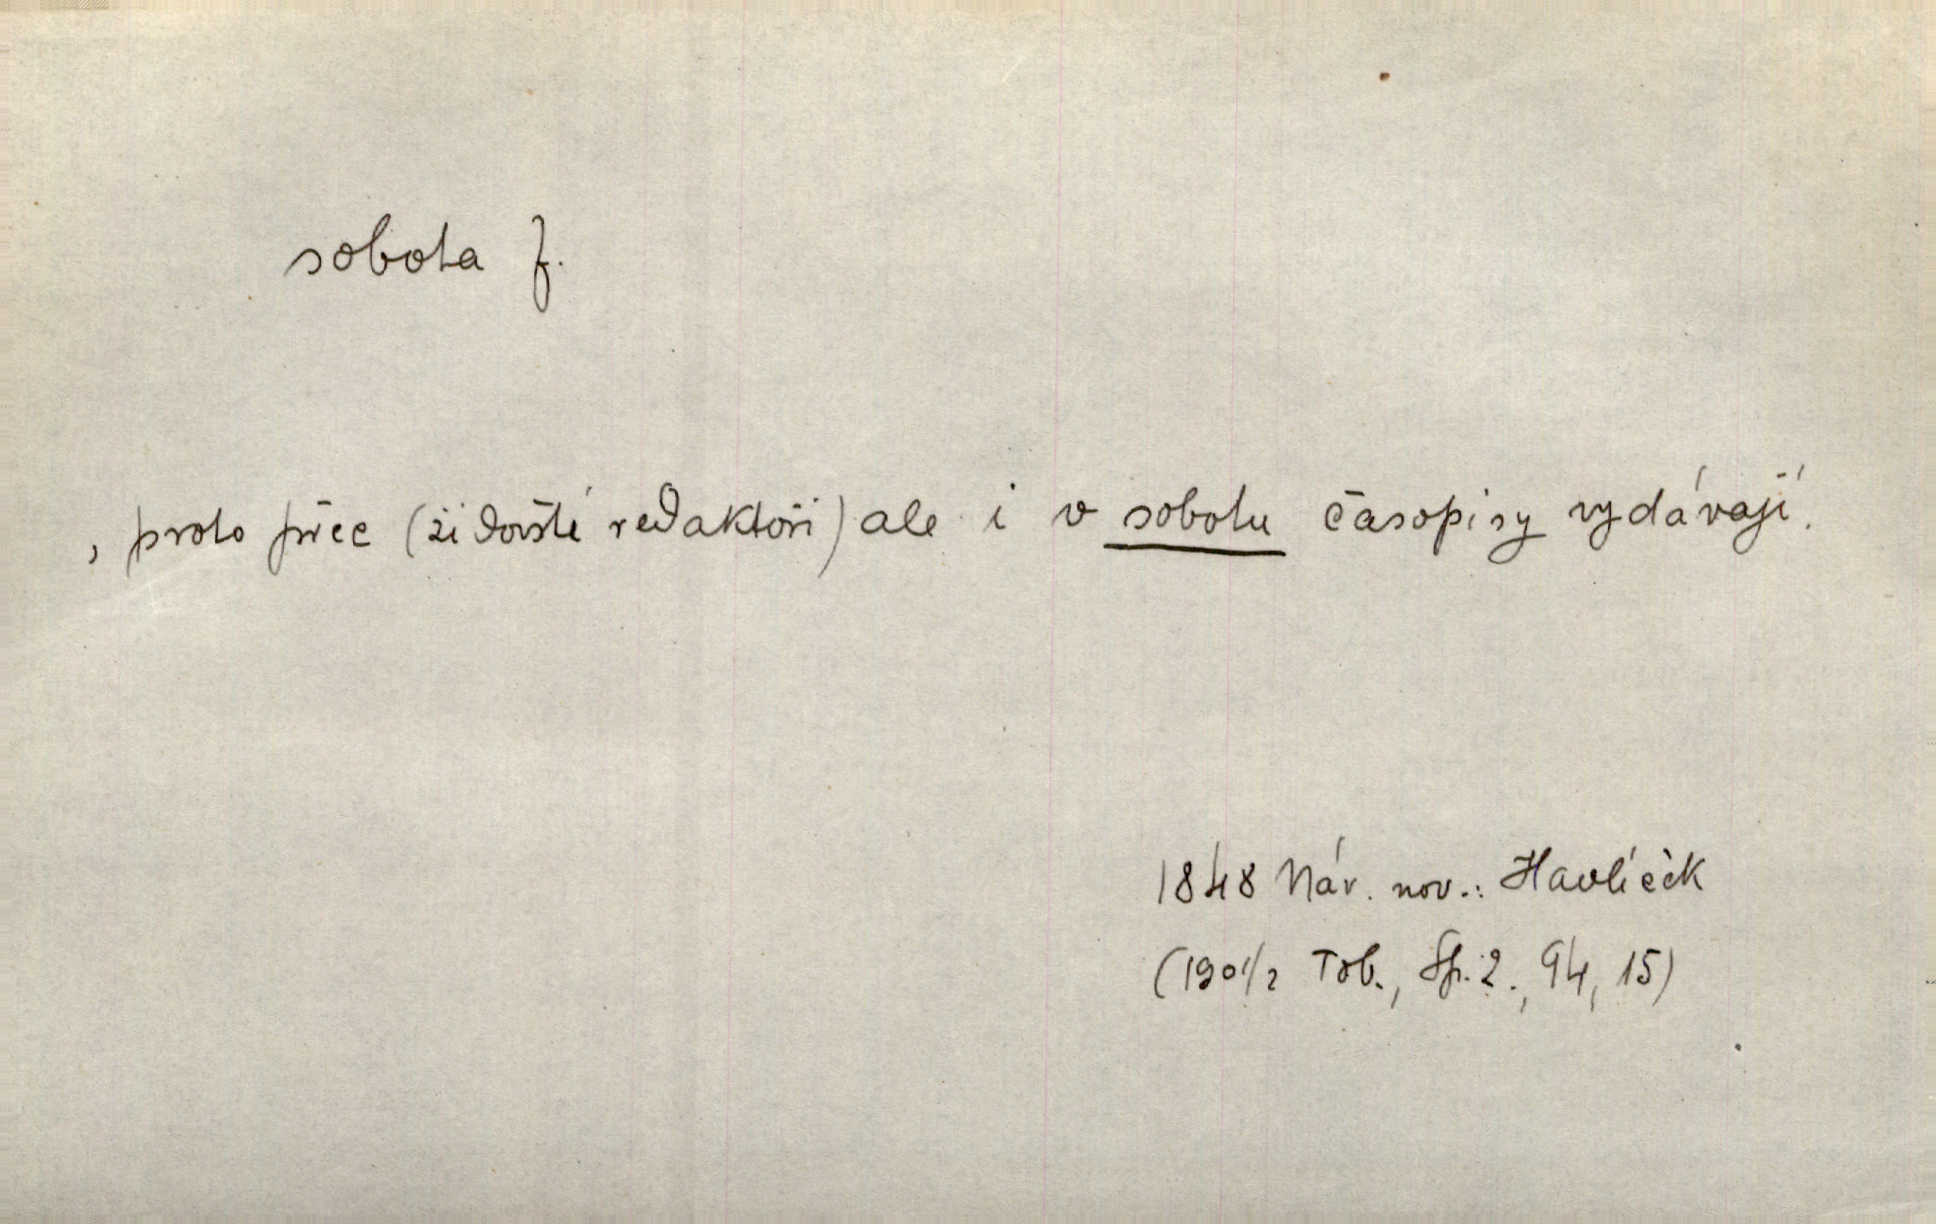 sobota f.
, proto přec (židovští redaktoři) ale i v sobotu časopisy vydávají.
1848 Nár. nov.: Havlíček
(1901/2 Tob., Sp. 2., 94, 15)